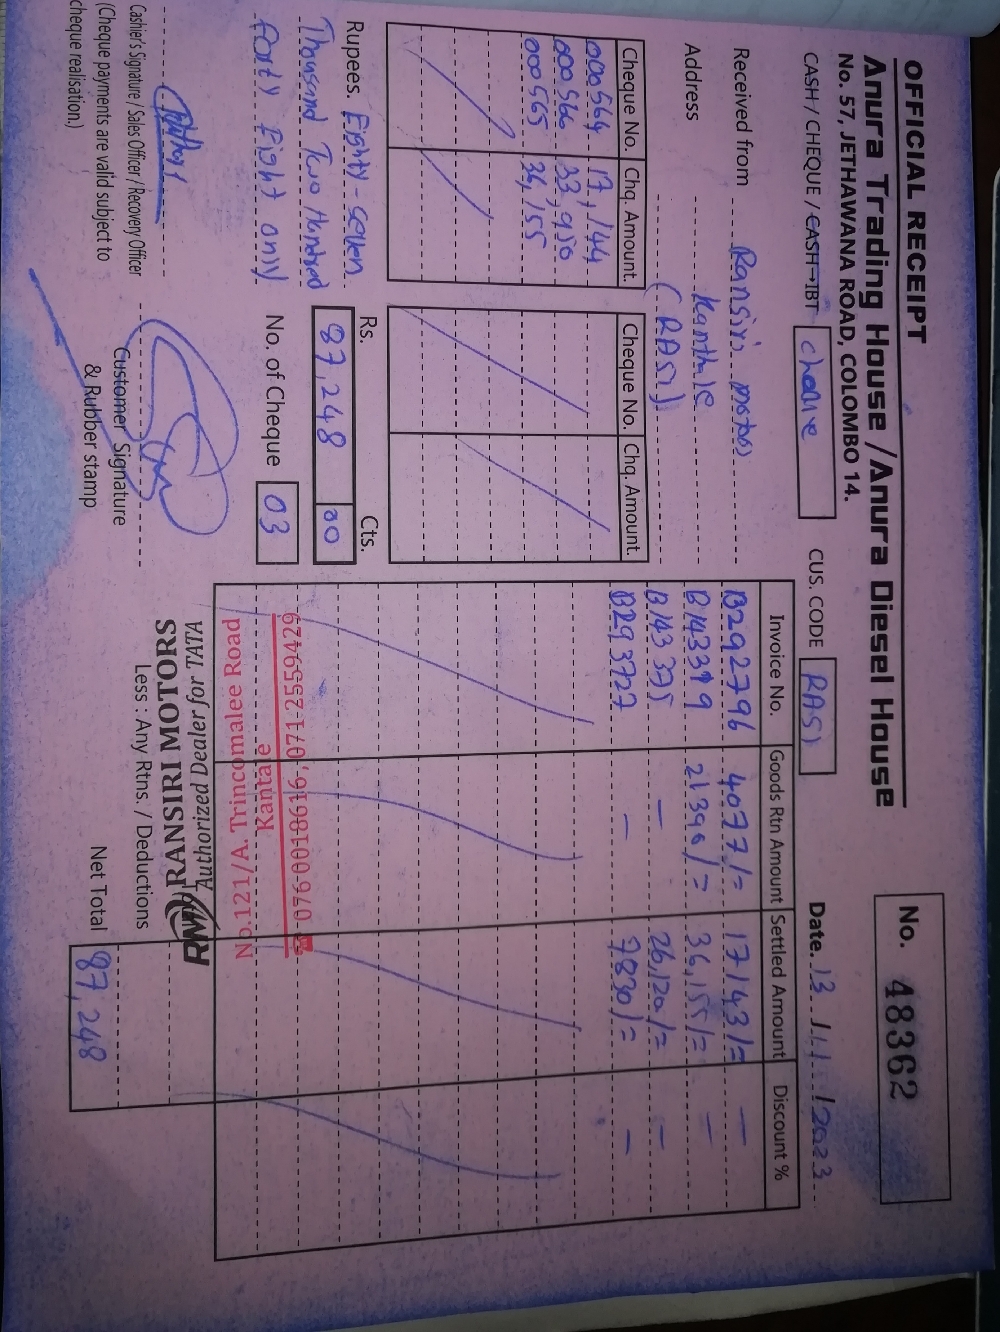 OFFICIAL RECEIPT
No. 48362
Anura Trading House / Anura Diesel House
No. 57, JETHAWANA ROAD, COLOMBO 14.
CASH / CHEQUE / CASH→IBT cheque CUS. CODE RASI Date. 13/11/2023
Received from Ransiri motors
Address Kanthale
(RASI)
Cheque No. Chq. Amount. Cheque No. Chq. Amount.
000564 17,144
000566 33,950
000565 36,155
Invoice No. Goods Rtn Amount Settled Amount Discount %
B292796 4077/= 17143/= –
B143319 21390/= 36,155/= –
B143375 – 26,120/= –
B293727 – 7830/= –
Rupees. Eighty-seven
Thousand Two Hundred
forty Eight only
Rs. Cts.
87,248 00
No. of Cheque 03
Cashier's Signature / Sales Officer / Recovery Officer
(Cheque payments are valid subject to
cheque realisation.)
Customer Signature
& Rubber stamp
☎ 0760018616, 0712559429
Kantale
No.121/A, Trincomalee Road
Authorizad Dealer for TATA
RANSIRI MOTORS
Less : Any Rtns. / Deductions
Net Total 87,248